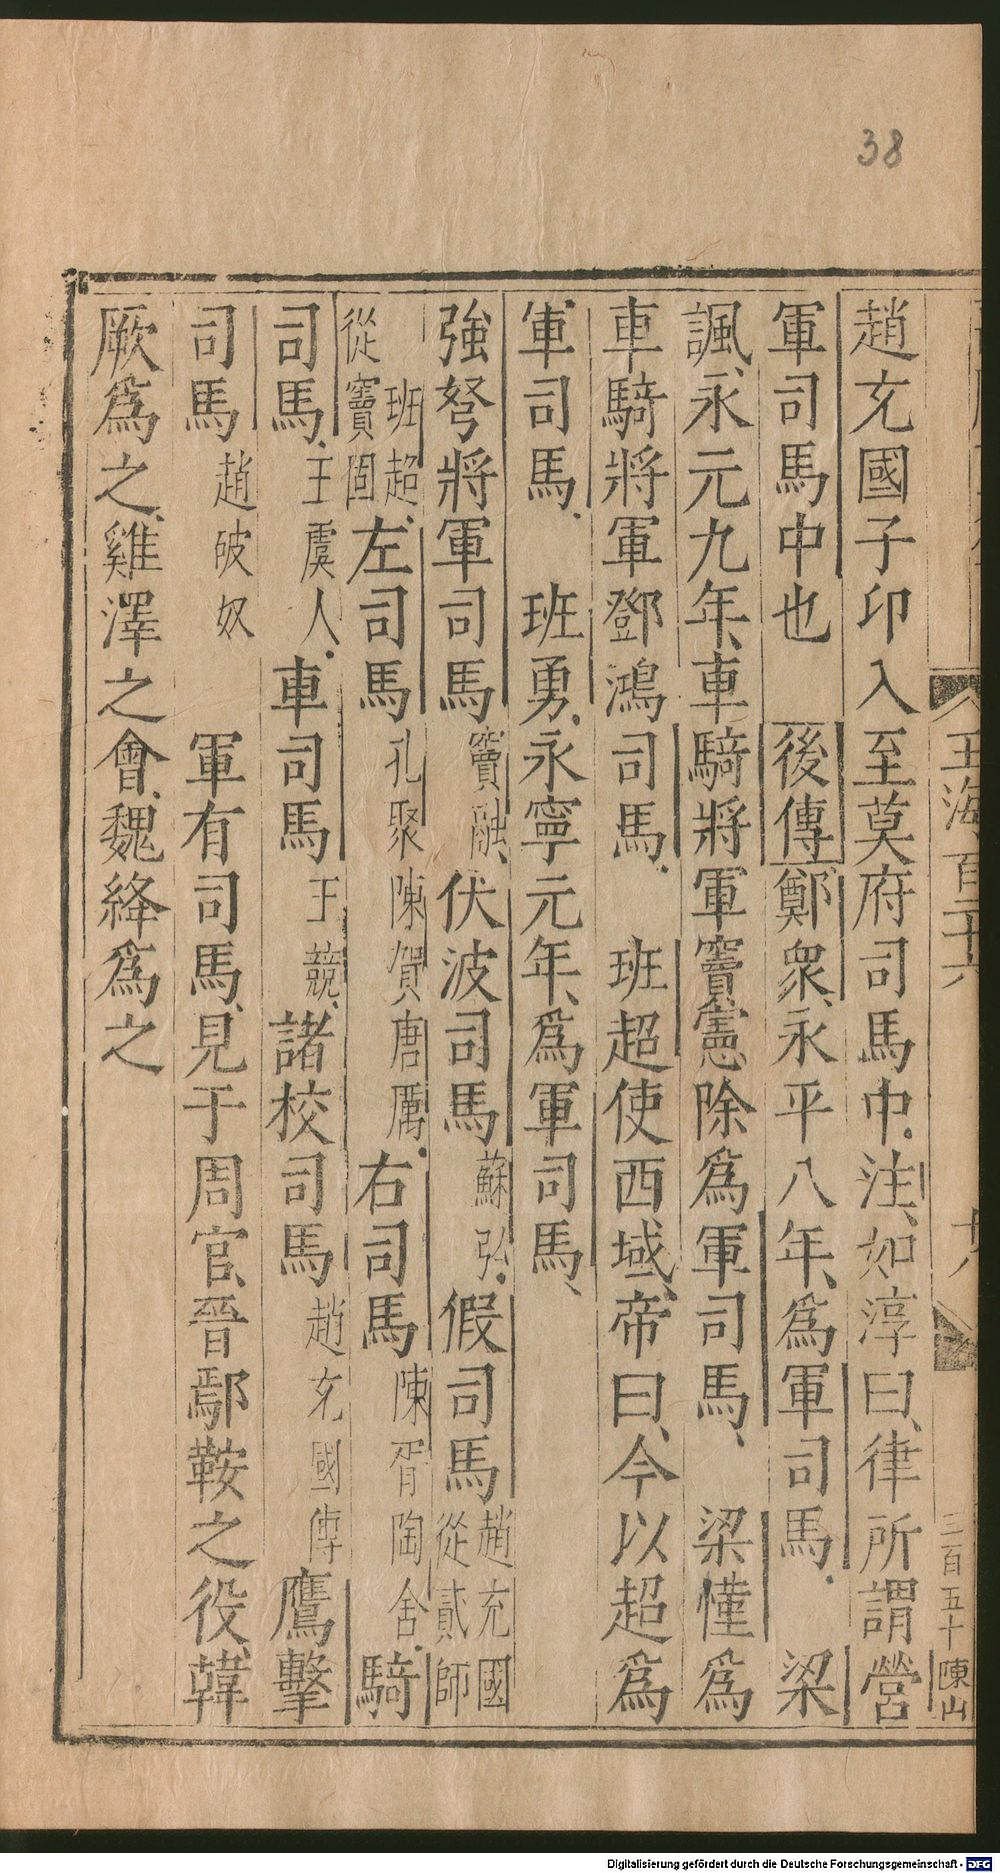 38
玉海 百三十六
廿八
三百五十
陳山
趙充國子卬入至莫府司馬中注如淳曰律所謂營
軍司馬中也 後傳鄭衆永平八年爲軍司馬 梁
諷永元九年車騎將軍竇憲除爲軍司馬 梁慬爲
車騎將軍鄧鴻司馬 班超使西域帝曰今以超爲
軍司馬 班勇永寧元年爲軍司馬
強弩將軍司馬 竇融 伏波司馬 蘇弘 假司馬 趙充國從貳師
班超從竇固 左司馬 孔聚陳賀唐厲 右司馬 陳胥陶舍 騎
司馬 王虞人 車司馬 王競 諸校司馬 趙充國傳 鷹擊
司馬 趙破奴 軍有司馬見于周官晉鄢鞍之役韓
厥爲之雞澤之會魏絳爲之
Digitalisierung gefördert durch die Deutsche Forschungsgemeinschaft - DFG